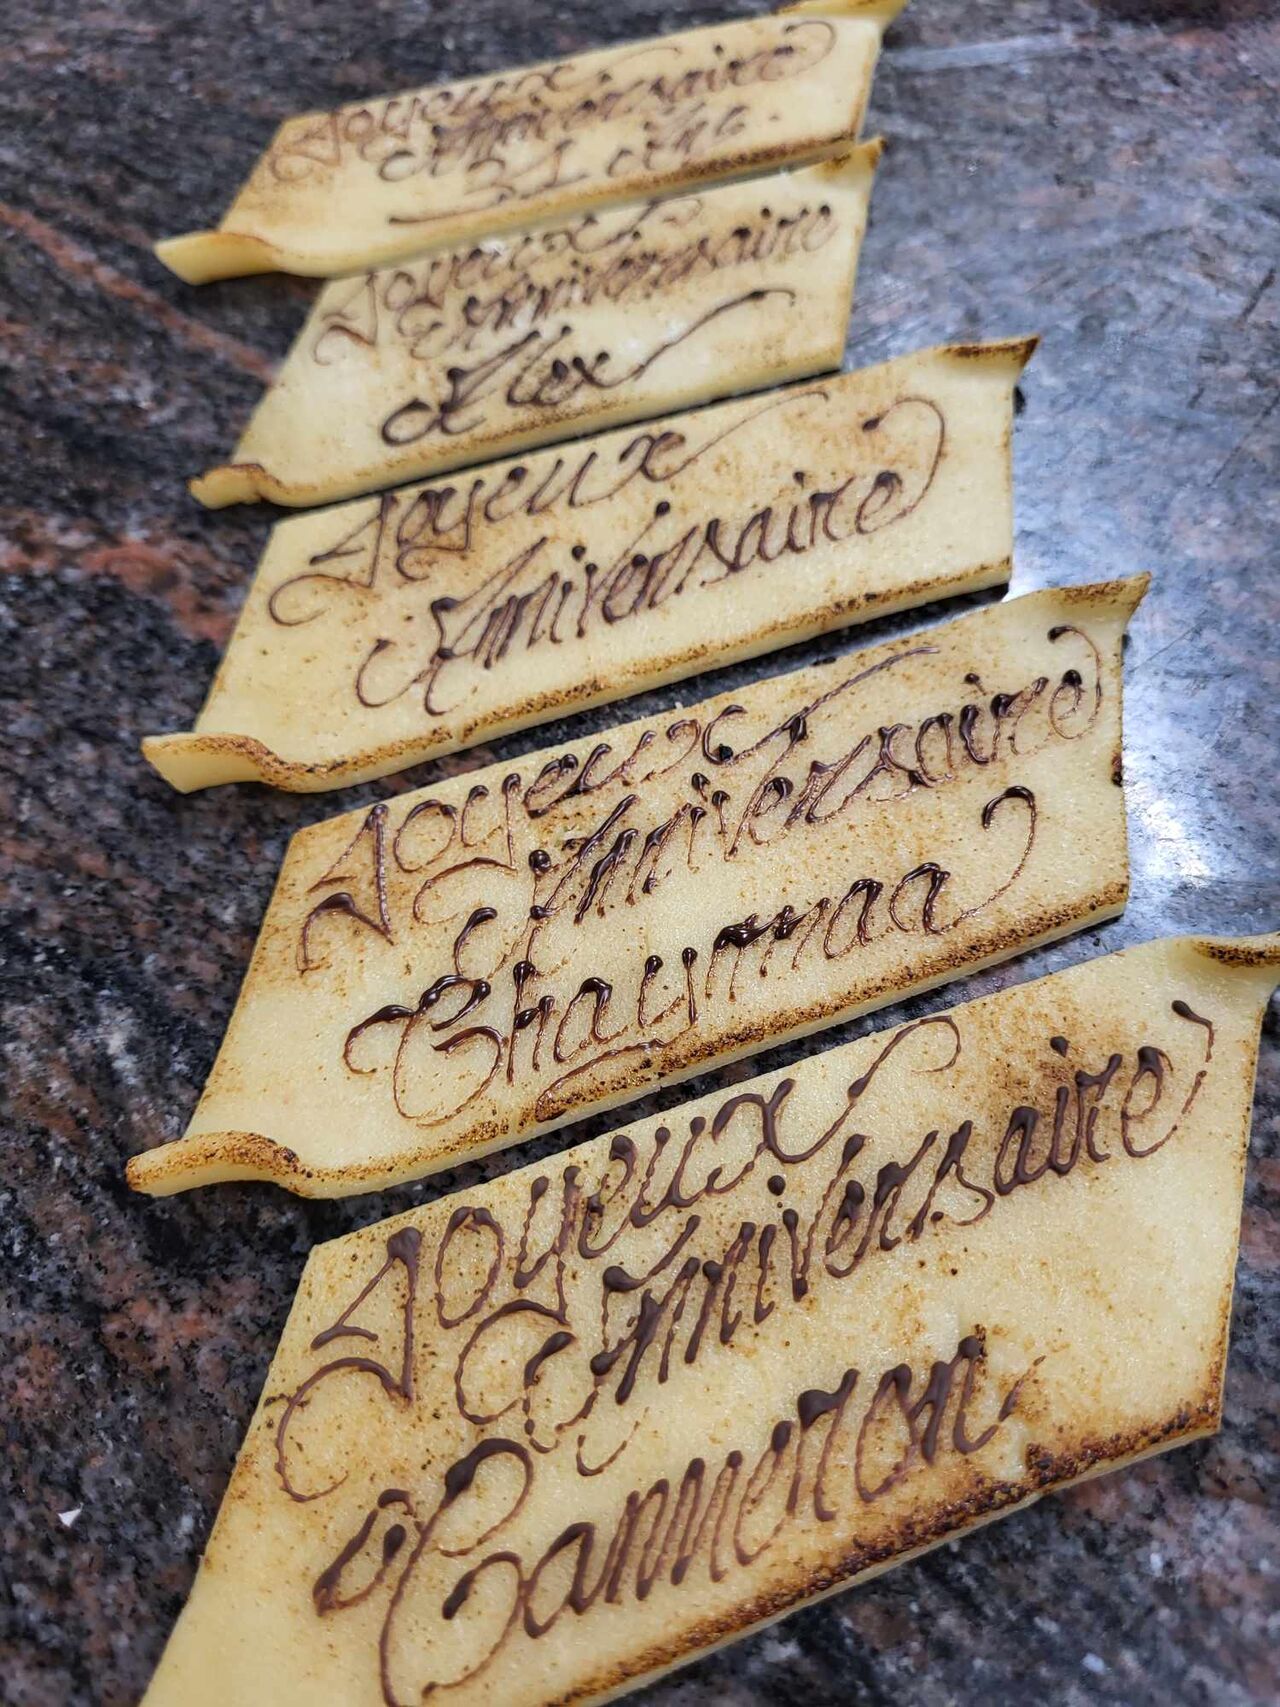 Joyeux
Anniversaire
31 ans.
Joyeux
Anniversaire
Alex
Joyeux
Anniversaire
Joyeux
Anniversaire
Chaymaa
Joyeux
Anniversaire
Cameron